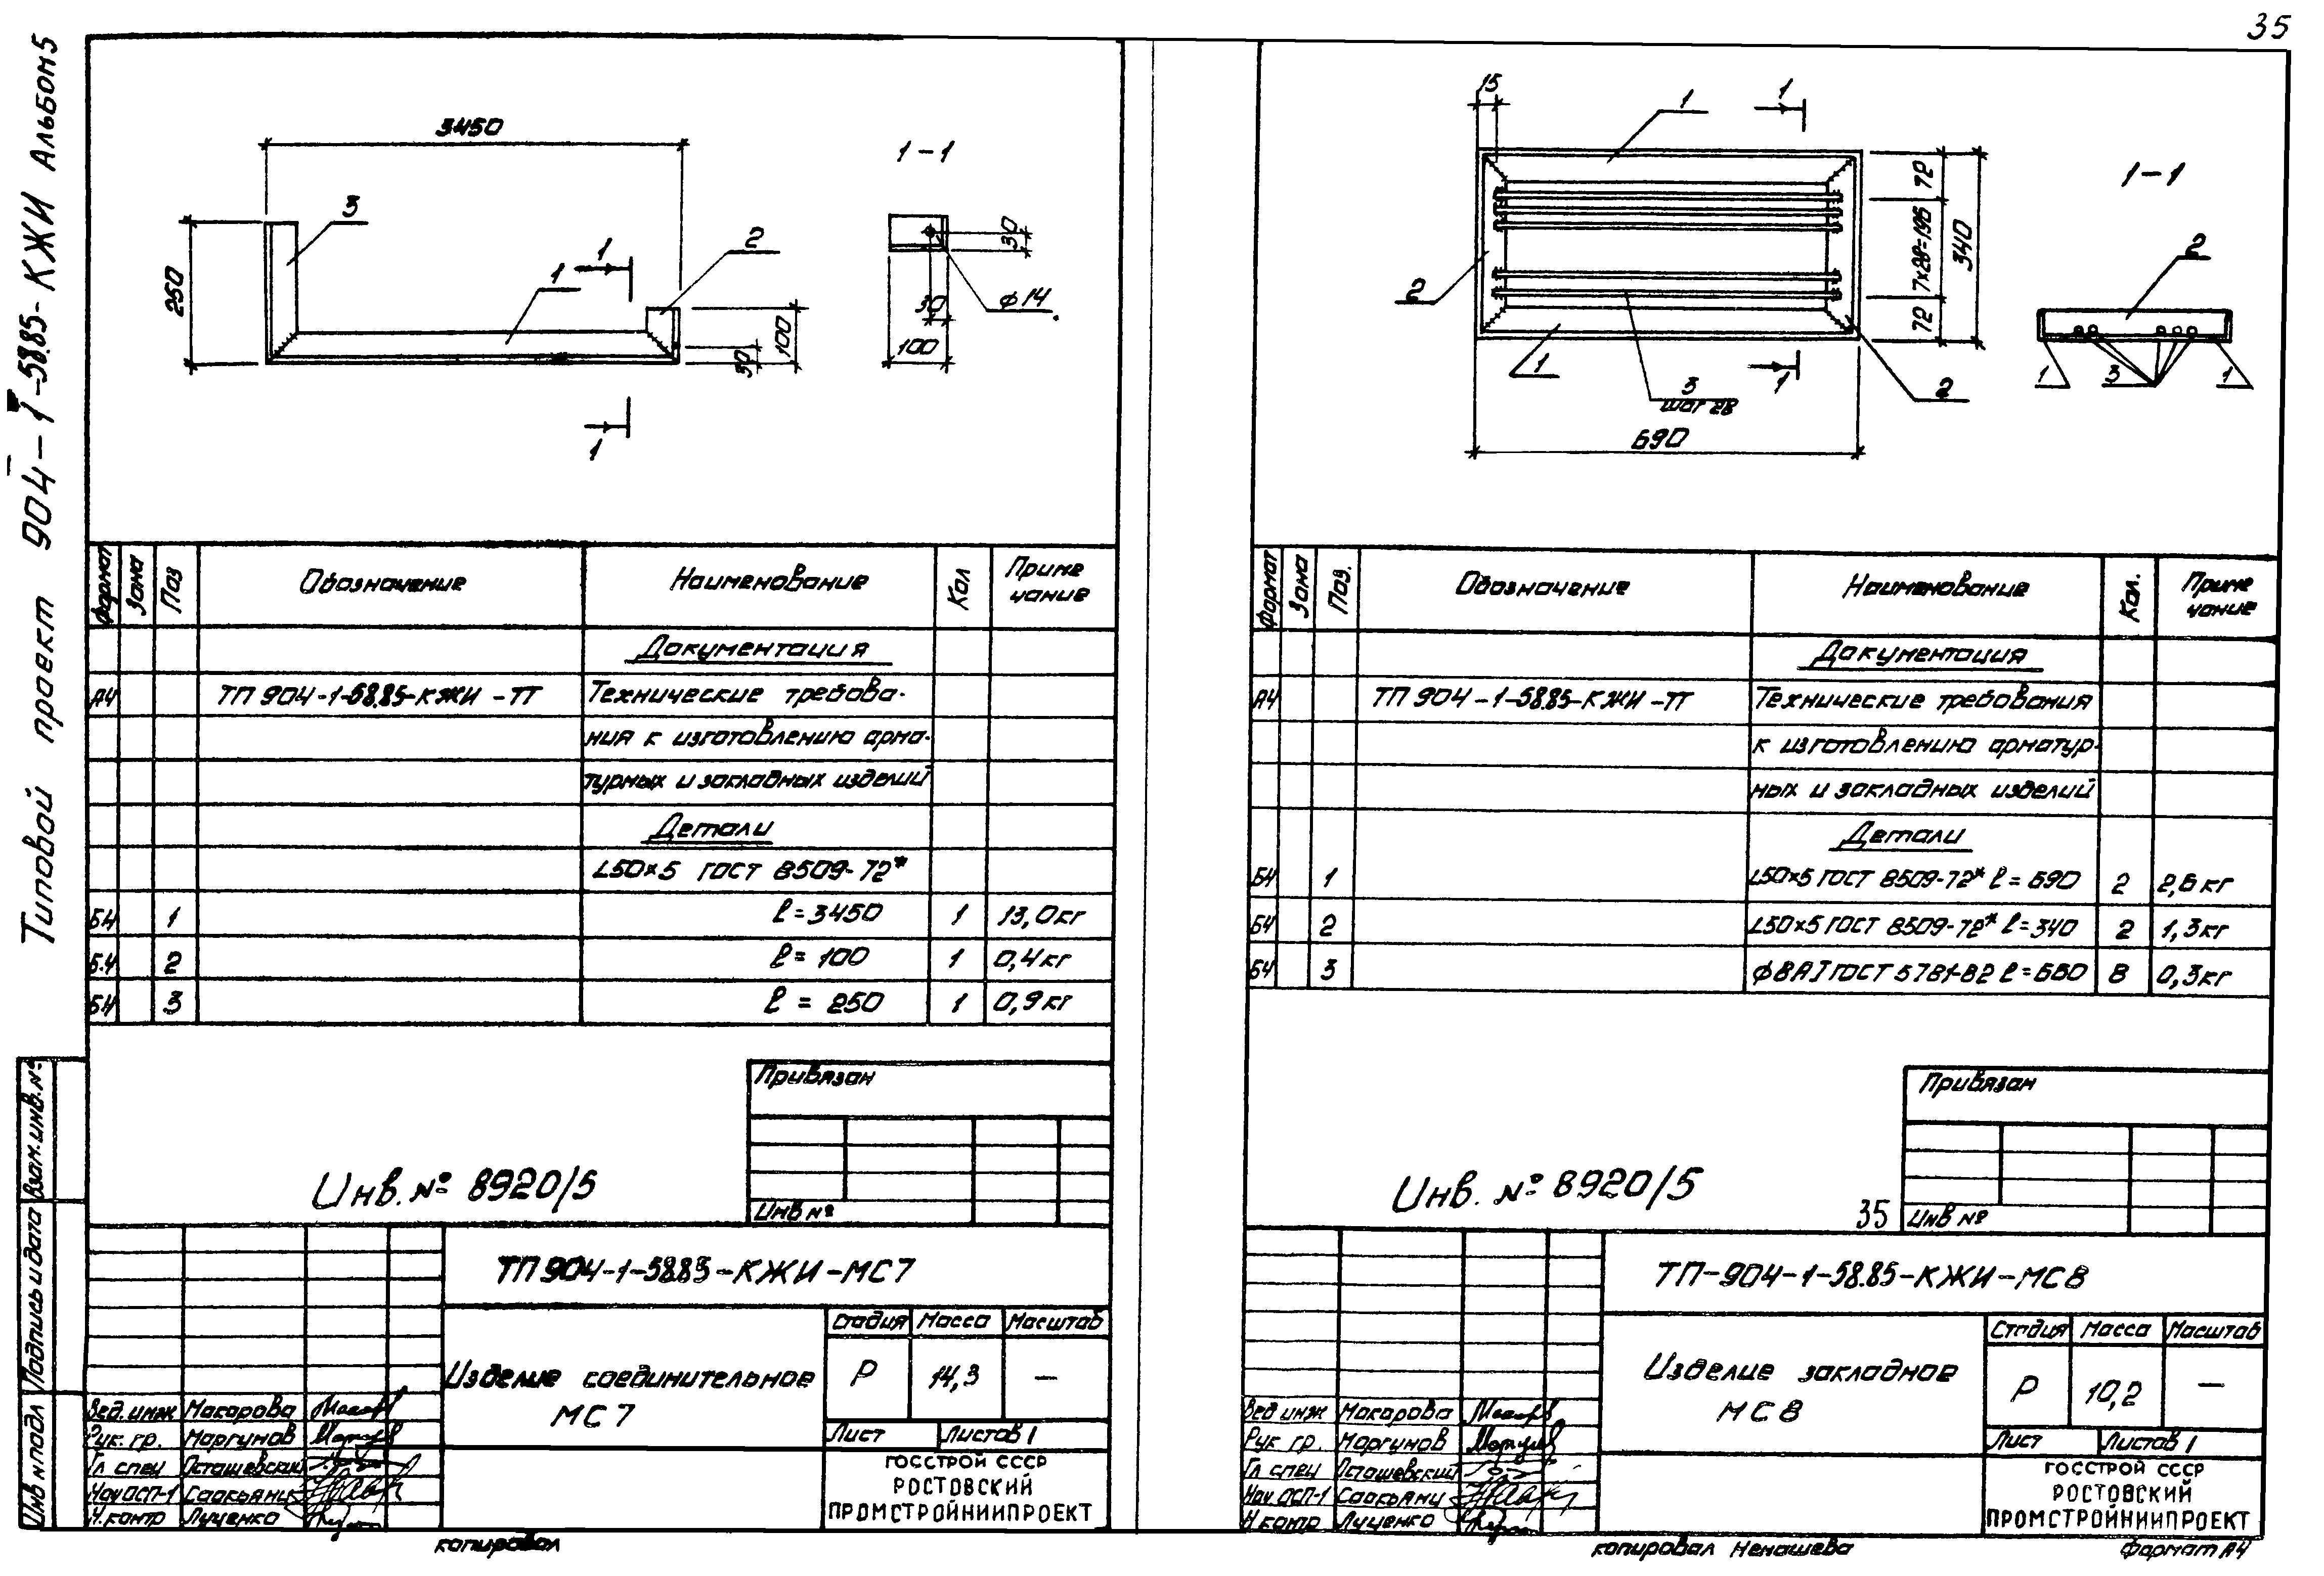 35
Типовой проект 904-1-58.85-КЖИ Альбом 5
3450
1-1
3
250
1
1
2
100
30
1
30
30
φ14
100
15
1
1
72
7×28=196
72
340
1-1
2
2
1
3
шаг 28
1
2
690
1
3
1
Формат
Зона
Поз
Обозначение
Наименование
Кол
Приме
чание
Документация
А4 ТП 904-1-58.85-КЖИ-ТТ Технические требова-
ния к изготовлению арма-
турных и закладных изделий
Детали
L50×5 ГОСТ 8509-72*
Б4 1 ℓ=3450 1 13,0кг
Б.4 2 ℓ=100 1 0,4кг
Б4 3 ℓ=250 1 0,9кг
Привязан
Инв №
Инв. № 8920/5
ТП 904-1-58.85-КЖИ-МС7
Изделие соединительное
МС7
Стадия Масса Масштаб
Р 14,3 —
Лист Листов 1
ГОССТРОЙ СССР
РОСТОВСКИЙ
ПРОМСТРОЙНИИПРОЕКТ
Вед. инж Макарова
Рук. гр. Моргунов
Гл спец Осташевский
Нач ОСП-1 Саакьянц
Н.контр Луценко
копировал
Взам.инв.№
Подпись и дата
Инв № подл
Формат
Зона
Поз.
Обозначение
Наименование
Кол.
Приме
чание
Документация
А4 ТП 904-1-58.85-КЖИ-ТТ Технические требования
к изготовлению арматур-
ных и закладных изделий
Детали
Б4 1 L50×5 ГОСТ 8509-72* ℓ=690 2 2,6кг
Б4 2 L50×5 ГОСТ 8509-72* ℓ=340 2 1,3кг
Б4 3 φ8АI ГОСТ 5781-82 ℓ=660 8 0,3кг
Привязан
Инв №
Инв. № 8920/5
35
ТП-904-1-58.85-КЖИ-МС8
Изделие закладное
МС8
Стадия Масса Масштаб
Р 10,2 —
Лист Листов 1
ГОССТРОЙ СССР
РОСТОВСКИЙ
ПРОМСТРОЙНИИПРОЕКТ
Вед инж Макарова
Рук гр. Моргунов
Гл спец Осташевский
Нач. ОСП-1 Саакьянц
Н контр Луценко
копировал Ненашева
Формат А4